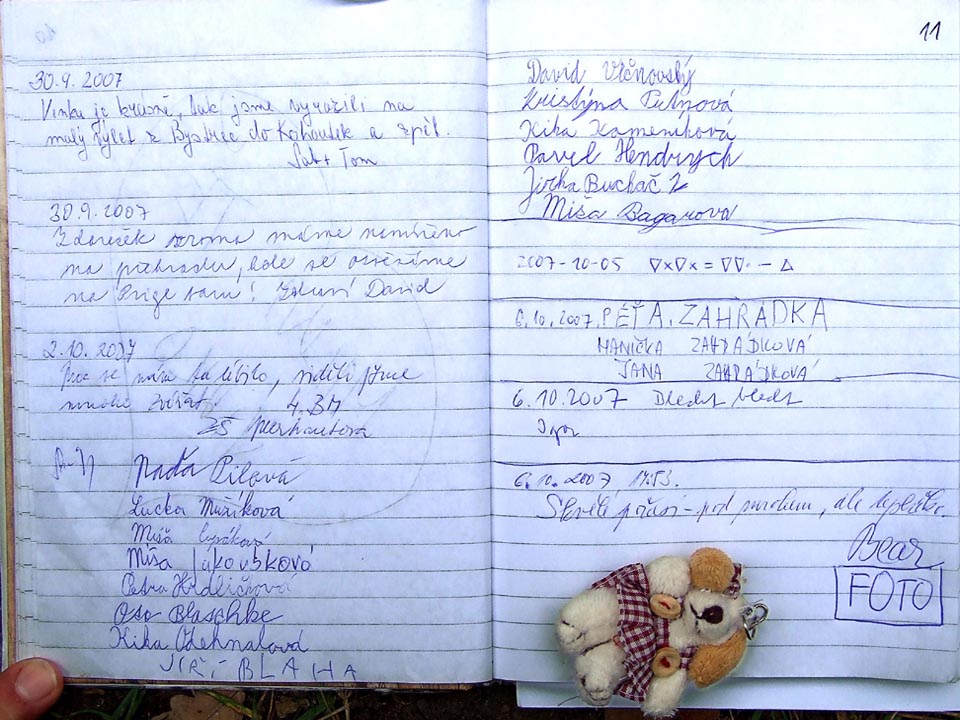 30.9.2007
je krásně, tak jsme vyrazili na
malý výlet z Bystrce do Kohoutek a zpět.
Tom
30.9.2007
máme namířeno
na přehradu, kde se
na Prigl sami! David
2.10.2007
se nám to líbilo, viděli jsme
mnoho zvířat. 4.B
ZŠ Merhautova
Naďa Pilová
Lucka Mužíková
Míša
Míša Jakoubková
Petra Hrdličková
Oto Blaschke
Kika Odehnalová
JIŘÍ BLAHA
11
David Vlčnovský
Kristýna
Kika Kameníková
Pavel Hendrych
Jirka Bucháč 2
Míša Bagarova
2007-10-05 ∇×∇× = ∇∇· − Δ
6.10.2007 PÉŤA. ZAHRÁDKA
MANIČKA ZAHRÁDKOVÁ
JANA ZAHRÁDKOVÁ
6.10.2007
Igor
6.10.2007 14:53.
Skvělé počasí - pod mrakem, ale
Bear
FOTO